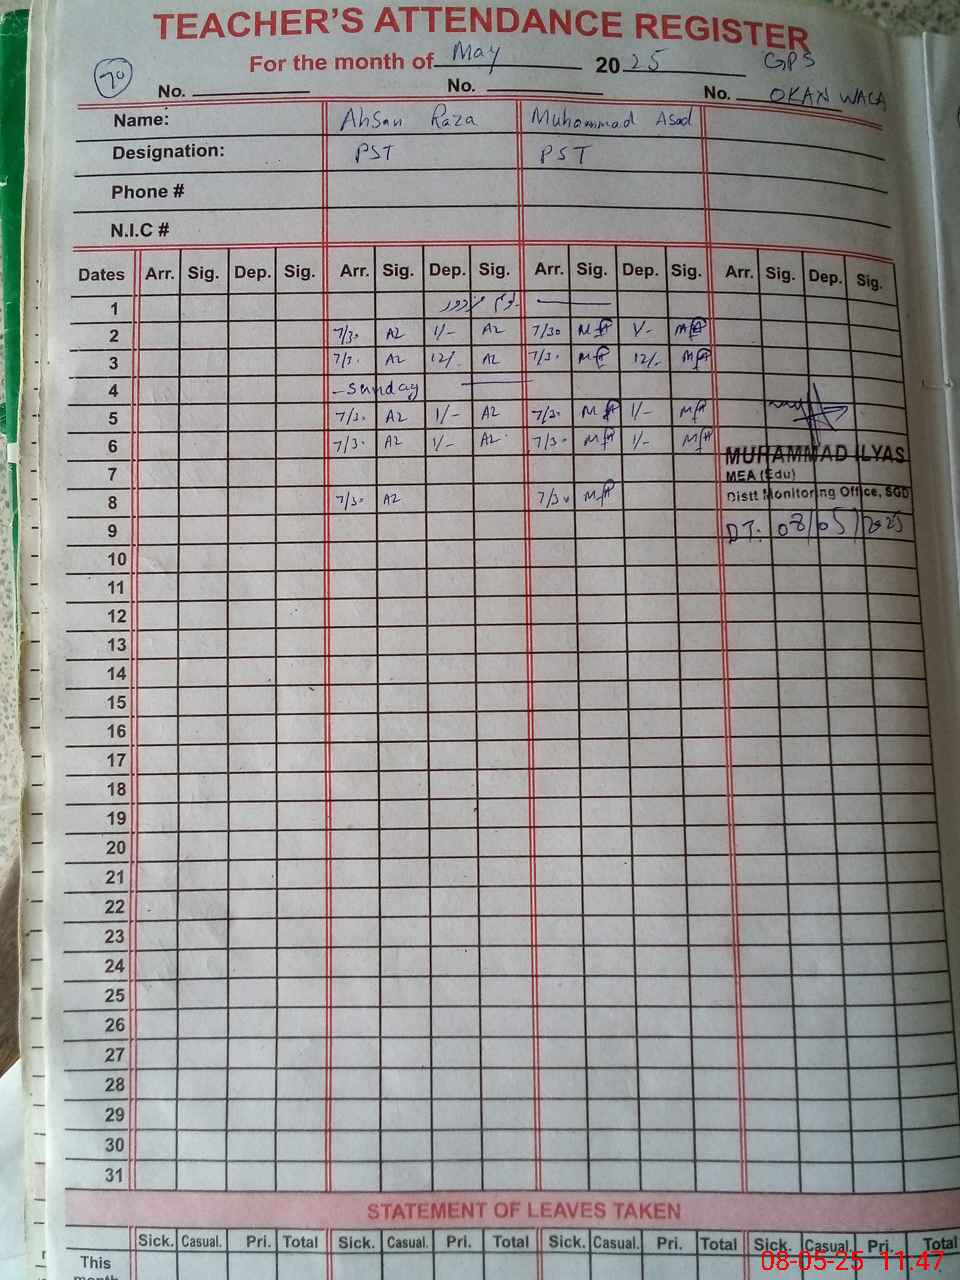 TEACHER'S ATTENDANCE REGISTER
For the month of May 2025 GPS
70 No. No. No. OKAN WALA
Name: Ahsan Raza Muhammad Asad
Designation: PST PST
Phone #
N.I.C #
Dates Arr. Sig. Dep. Sig. Arr. Sig. Dep. Sig. Arr. Sig. Dep. Sig. Arr. Sig. Dep. Sig.
1 یوم مزدور
2 7/30 AZ 1/- AZ 7/30 MA 1/- MA
3 7/30 AZ 12/- AZ 7/30 MA 12/- MA
4 Sunday
5 7/30 AZ 1/- AZ 7/30 MA 1/- MA
6 7/30 AZ 1/- AZ 7/30 MA 1/- MA
MUHAMMAD ILYAS
7 MEA (Edu)
8 7/30 AZ 7/30 MA Distt Monitoring Office, SGD
9 DT: 08/05/2025
10
11
12
13
14
15
16
17
18
19
20
21
22
23
24
25
26
27
28
29
30
31
STATEMENT OF LEAVES TAKEN
Sick. Casual. Pri. Total Sick. Casual. Pri. Total Sick. Casual. Pri. Total Sick. Casual. Pri. Total
This
month
08-05-25 11:47